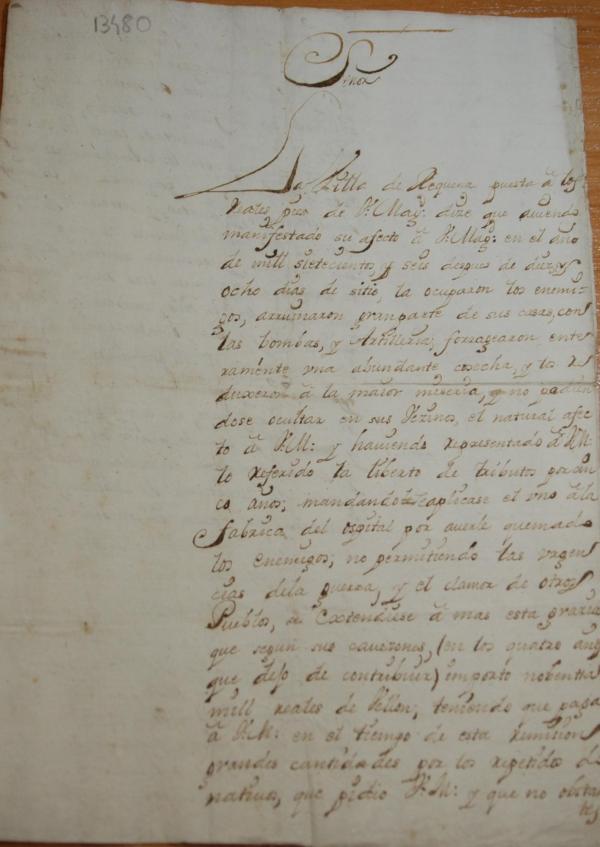 13480
Señor
La Villa de Requena puesta â los
Reales pies de V. Magḍ. dize que aviendo
manifestado su afecto â V. Magḍ: en el año
de mill sietecientos, y seis despues de diez, y
ocho dias de sitio, la ocuparon los enemi-
gos, arruinaron gran parte de sus casas, con
las bombas, y Artilleria; forragearon ente
ramente vna abundante cosecha, y los re
duxeron â la maior miseria, y no pudien
dose ocultar en sus Vezinos, el natural afec
to â V. M: y haviendo representado â V. M:
lo referido la liberto de tributos por cin
co años; mandando se aplicase el vno â la
Fabrica del ospital por averle quemado
los enemigos; no permitiendo las vrgen
cias dela guerra, y el clamor de otros
Pueblos, se extendiese â mas esta gracia
que segun sus cavezones, (en los quatro años
que dejo de contribuir) importó nobenta
mill reales de Vellon, teniendo que pagar
â V. M: en el tiempo de esta remision
grandes cantidades por los repetidos do
nativos, que pidio V. M: y que no obstan
tes